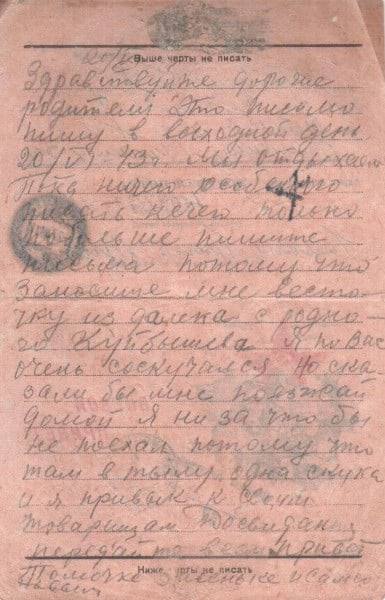 Выше черты не писать
20/VI
Здравствуйте дорогие
родители Это письмо
пишу в выходной день
20/VI 43г. Мы отдыхаем
Пока ничего особенного
писать нечего только
по больше пишите
письма потому что
Заносище мне весто-
чку из далека с родно-
го Куйбышева Я по Вас
очень соскучался Но ска-
зали бы мне поезжай
домой Я ни за что бы
не поехал потому что
там в тылу одна скука
и я привык к
товарищам Досвидания
передайте всем привет
Томочке
Ниже черты не писать